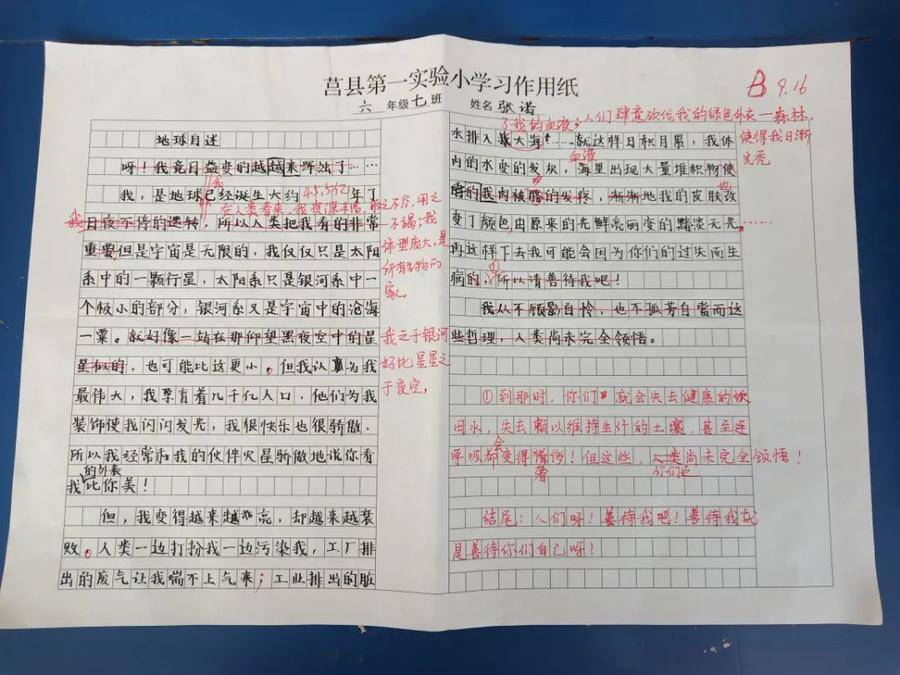 莒县第一实验小学习作用纸
六 年级七班 姓名 张诺
B 9.16
地球自述
呀！我竟日益变的越越来辉煌了……
我，是地球已经诞生大约45.5亿年了
在人类看来，我资源丰富，取之不尽，用之
不竭；我
体型庞大，是
所有生物的
家。
我日夜不停的运转，所以人类把我看的非常
重要但是宇宙是无限的，我仅仅只是太阳
系中的一颗行星，太阳系只是银河系中一
个极小的部分，银河系又是宇宙中的沧海
一粟。就好像一站在那仰望黑夜空中的星
星似的，也可能比这更小，但我认为我
我之于银河
好比星星之
于夜空，
最伟大，我票育着几千亿人口，他们为我
装饰使我闪闪发光，我很快乐也很骄傲，
所以我经常和我的伙伴火星骄傲地说你看
的外表
我比你美！
但，我变得越来越漂亮，却越来越衰
败，人类一边打扮我一边污染我，工厂排
出的废气让我喘不上气来；工业排出的脏
了我的血液；人们肆意砍伐我的绿色外衣—森林，
使得我日渐
光秃
水排入我大海……就这样日积月累，我体
血液
内的水变的发灰，海里出现大量堆积物使
的我肉被腐的发疼，渐渐地我的皮肤改
变了颜色，由原来的光鲜亮丽变的黯淡无光……
再这样下去我可能会因为你们的过失而生
病的，①所以请善待我吧！
我从不顾影自怜，也不孤芳自赏而这
些哲理，人类尚未完全领悟。
①到那时，你们就会失去健康的饮
用水，失去赖以维持生计的土壤，甚至连
呼吸都会变得奢侈！但这些，人类尚未完全领悟！
你们还
结尾：人们呀！善待我吧！善待我就
是善待你们自己呀！